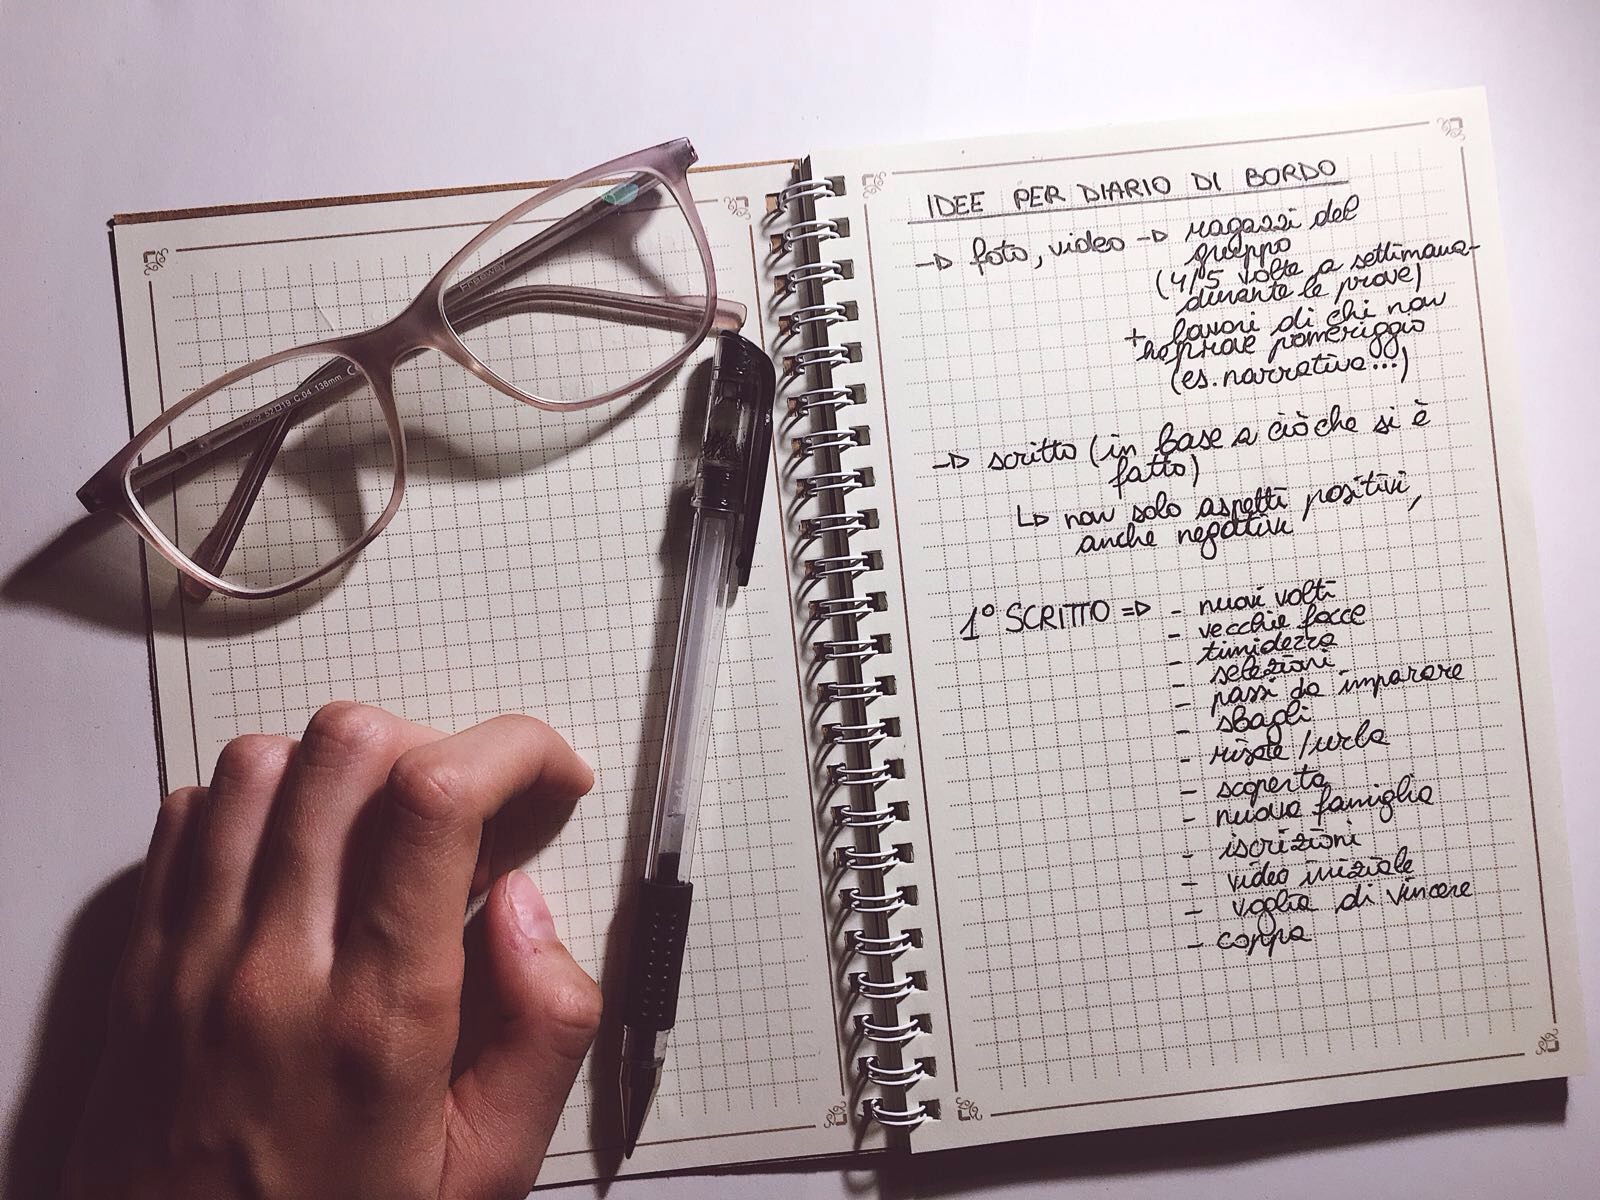 IDEE PER DIARIO DI BORDO
-> foto, video -> ragazzi del
gruppo
(4/5 volte a settimana-
durante le prove)
+ lavori di chi non
ha prove pomeriggio
(es. narrativa...)
-> scritto (in base a ciò che si è
fatto)
↳ non solo aspetti positivi,
anche negativi
1° SCRITTO => - nuovi volti
- vecchie facce
- timidezza
- selezioni
- passi da imparare
- sbagli
- risate / urla
- scoperta
- nuova famiglia
- iscrizioni
- video iniziale
- voglia di vincere
- coppa
Freeway
52□19 C.04 138mm C